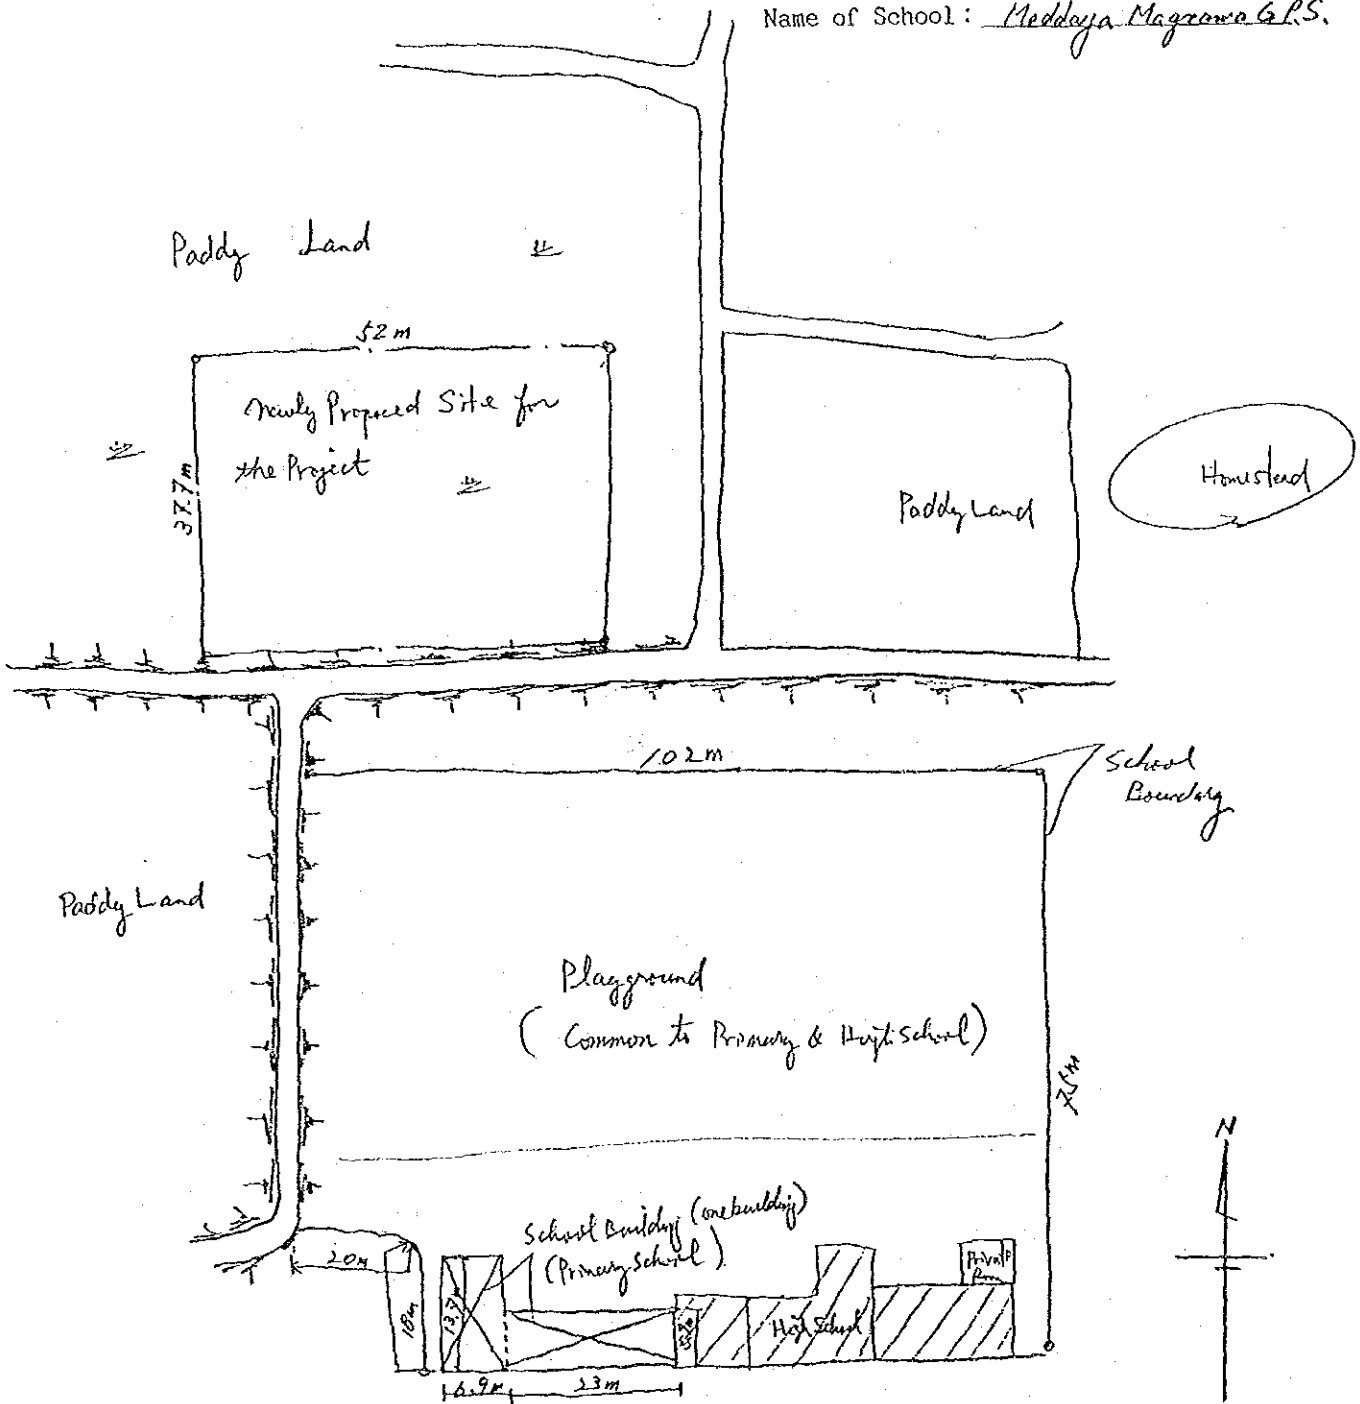 Name of School: Meddaya Magrawa G.P.S.
Paddy Land
52 m
Newly Proposed Site for
the Project
37.7 m
Paddy Land
Homestead
102 m
School
Boundary
Paddy Land
Playground
( Common to Primary & High School)
75 m
N
School Building (one building)
(Primary School)
20 m
18 m
13.7 m
High School
6.9 m
23 m